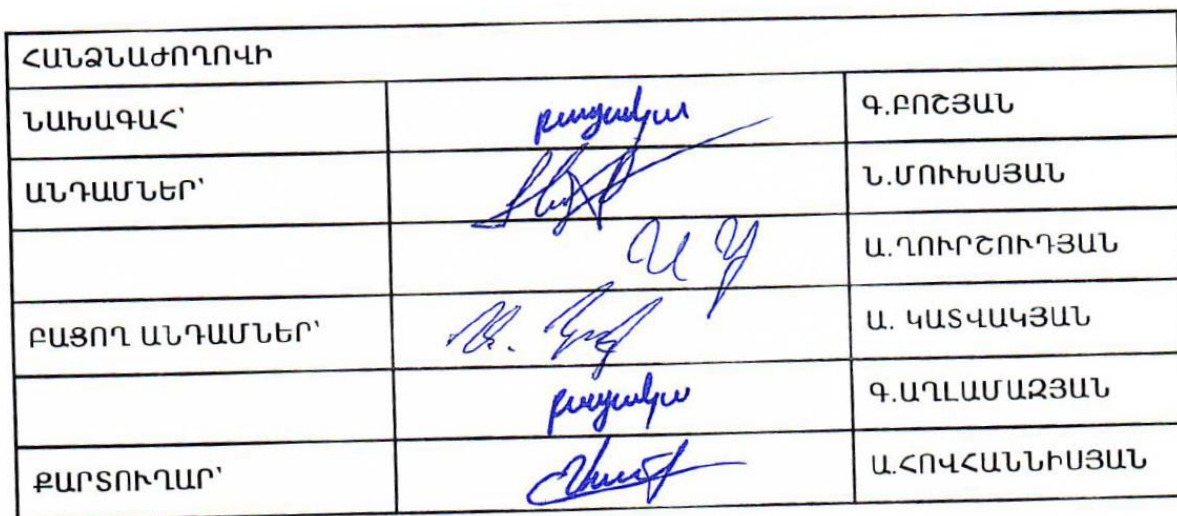 ՀԱՆՁՆԱԺՈՂՈՎԻ
ՆԱԽԱԳԱՀ՝ բացակա Գ.ԲՈՇՅԱՆ
ԱՆԴԱՄՆԵՐ՝ Ն.ՄՈՒԽՍՅԱՆ
Ա.ՂՈՒՐՇՈՒԴՅԱՆ
ԲԱՑՈՂ ԱՆԴԱՄՆԵՐ՝ Ա. ԿԱՏՎԱԿՅԱՆ
բացակա Գ.ԱՂԼԱՄԱԶՅԱՆ
ՔԱՐՏՈՒՂԱՐ՝ Ա.ՀՈՎՀԱՆՆԻՍՅԱՆ